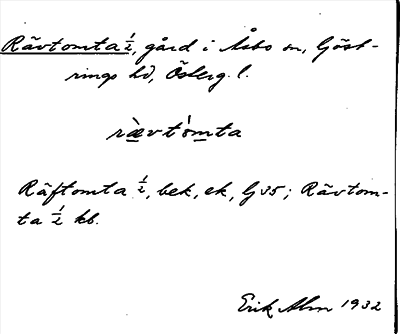 Rävtomta ½, gård i Åsbo sn, Göst-
rings hd, Österg. l.
rævtòmta
Räftomta ½, bek, ek, Gj 35; Rävtom-
ta ½ kb.
Erik Alm 1932